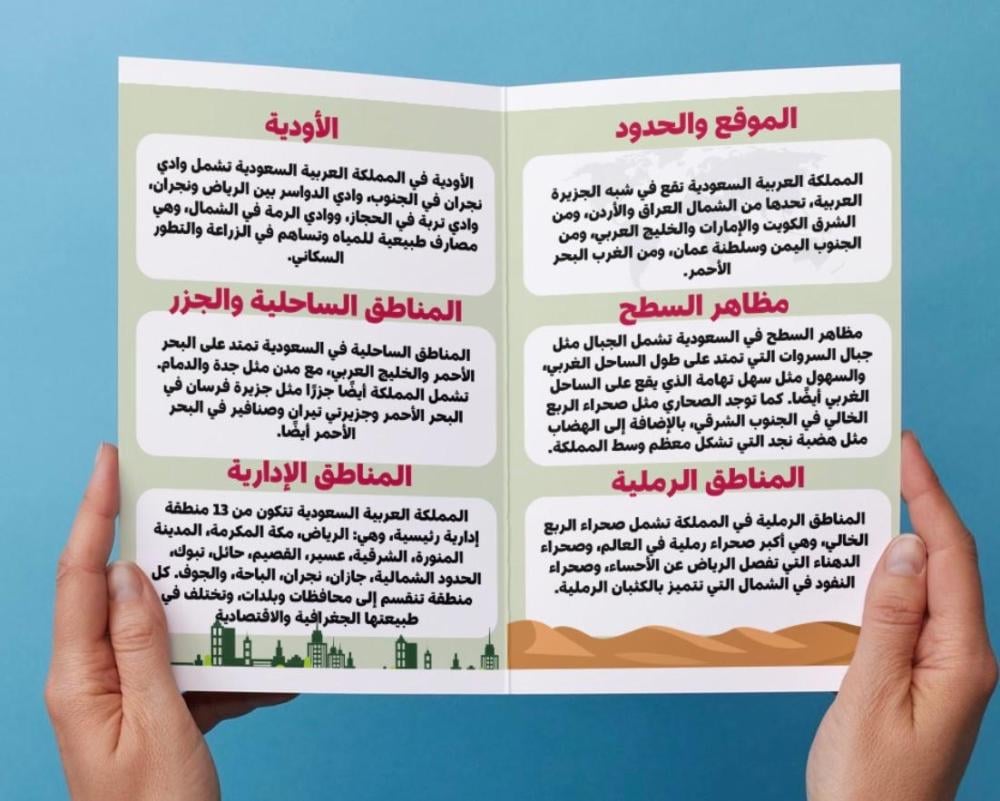 الموقع والحدود
المملكة العربية السعودية تقع في شبه الجزيرة
العربية، تحدها من الشمال العراق والأردن، ومن
الشرق الكويت والإمارات والخليج العربي، ومن
الجنوب اليمن وسلطنة عمان، ومن الغرب البحر
الأحمر.
مظاهر السطح
مظاهر السطح في السعودية تشمل الجبال مثل
جبال السروات التي تمتد على طول الساحل الغربي،
والسهول مثل سهل تهامة الذي يقع على الساحل
الغربي أيضًا. كما توجد الصحاري مثل صحراء الربع
الخالي في الجنوب الشرقي، بالإضافة إلى الهضاب
مثل هضبة نجد التي تشكل معظم وسط المملكة.
المناطق الرملية
المناطق الرملية في المملكة تشمل صحراء الربع
الخالي، وهي أكبر صحراء رملية في العالم، وصحراء
الدهناء التي تفصل الرياض عن الأحساء، وصحراء
النفود في الشمال التي تتميز بالكثبان الرملية.
الأودية
الأودية في المملكة العربية السعودية تشمل وادي
نجران في الجنوب، وادي الدواسر بين الرياض ونجران،
وادي تربة في الحجاز، ووادي الرمة في الشمال، وهي
مصارف طبيعية للمياه وتساهم في الزراعة والتطور
السكاني.
المناطق الساحلية والجزر
المناطق الساحلية في السعودية تمتد على البحر
الأحمر والخليج العربي، مع مدن مثل جدة والدمام.
تشمل المملكة أيضًا جزرًا مثل جزيرة فرسان في
البحر الأحمر وجزيرتي تيران وصنافير في البحر
الأحمر أيضًا.
المناطق الإدارية
المملكة العربية السعودية تتكون من 13 منطقة
إدارية رئيسية، وهي: الرياض، مكة المكرمة، المدينة
المنورة، الشرقية، عسير، القصيم، حائل، تبوك،
الحدود الشمالية، جازان، نجران، الباحة، والجوف. كل
منطقة تنقسم إلى محافظات وبلدات، وتختلف في
طبيعتها الجغرافية والاقتصادية